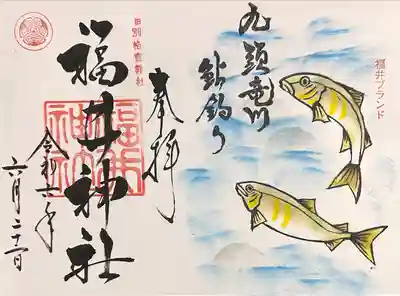 福井ブランド
九頭竜川
鮎釣り
奉拝
旧別格官幣社
福井神社
福井
神社
令和六年
六月二十一日